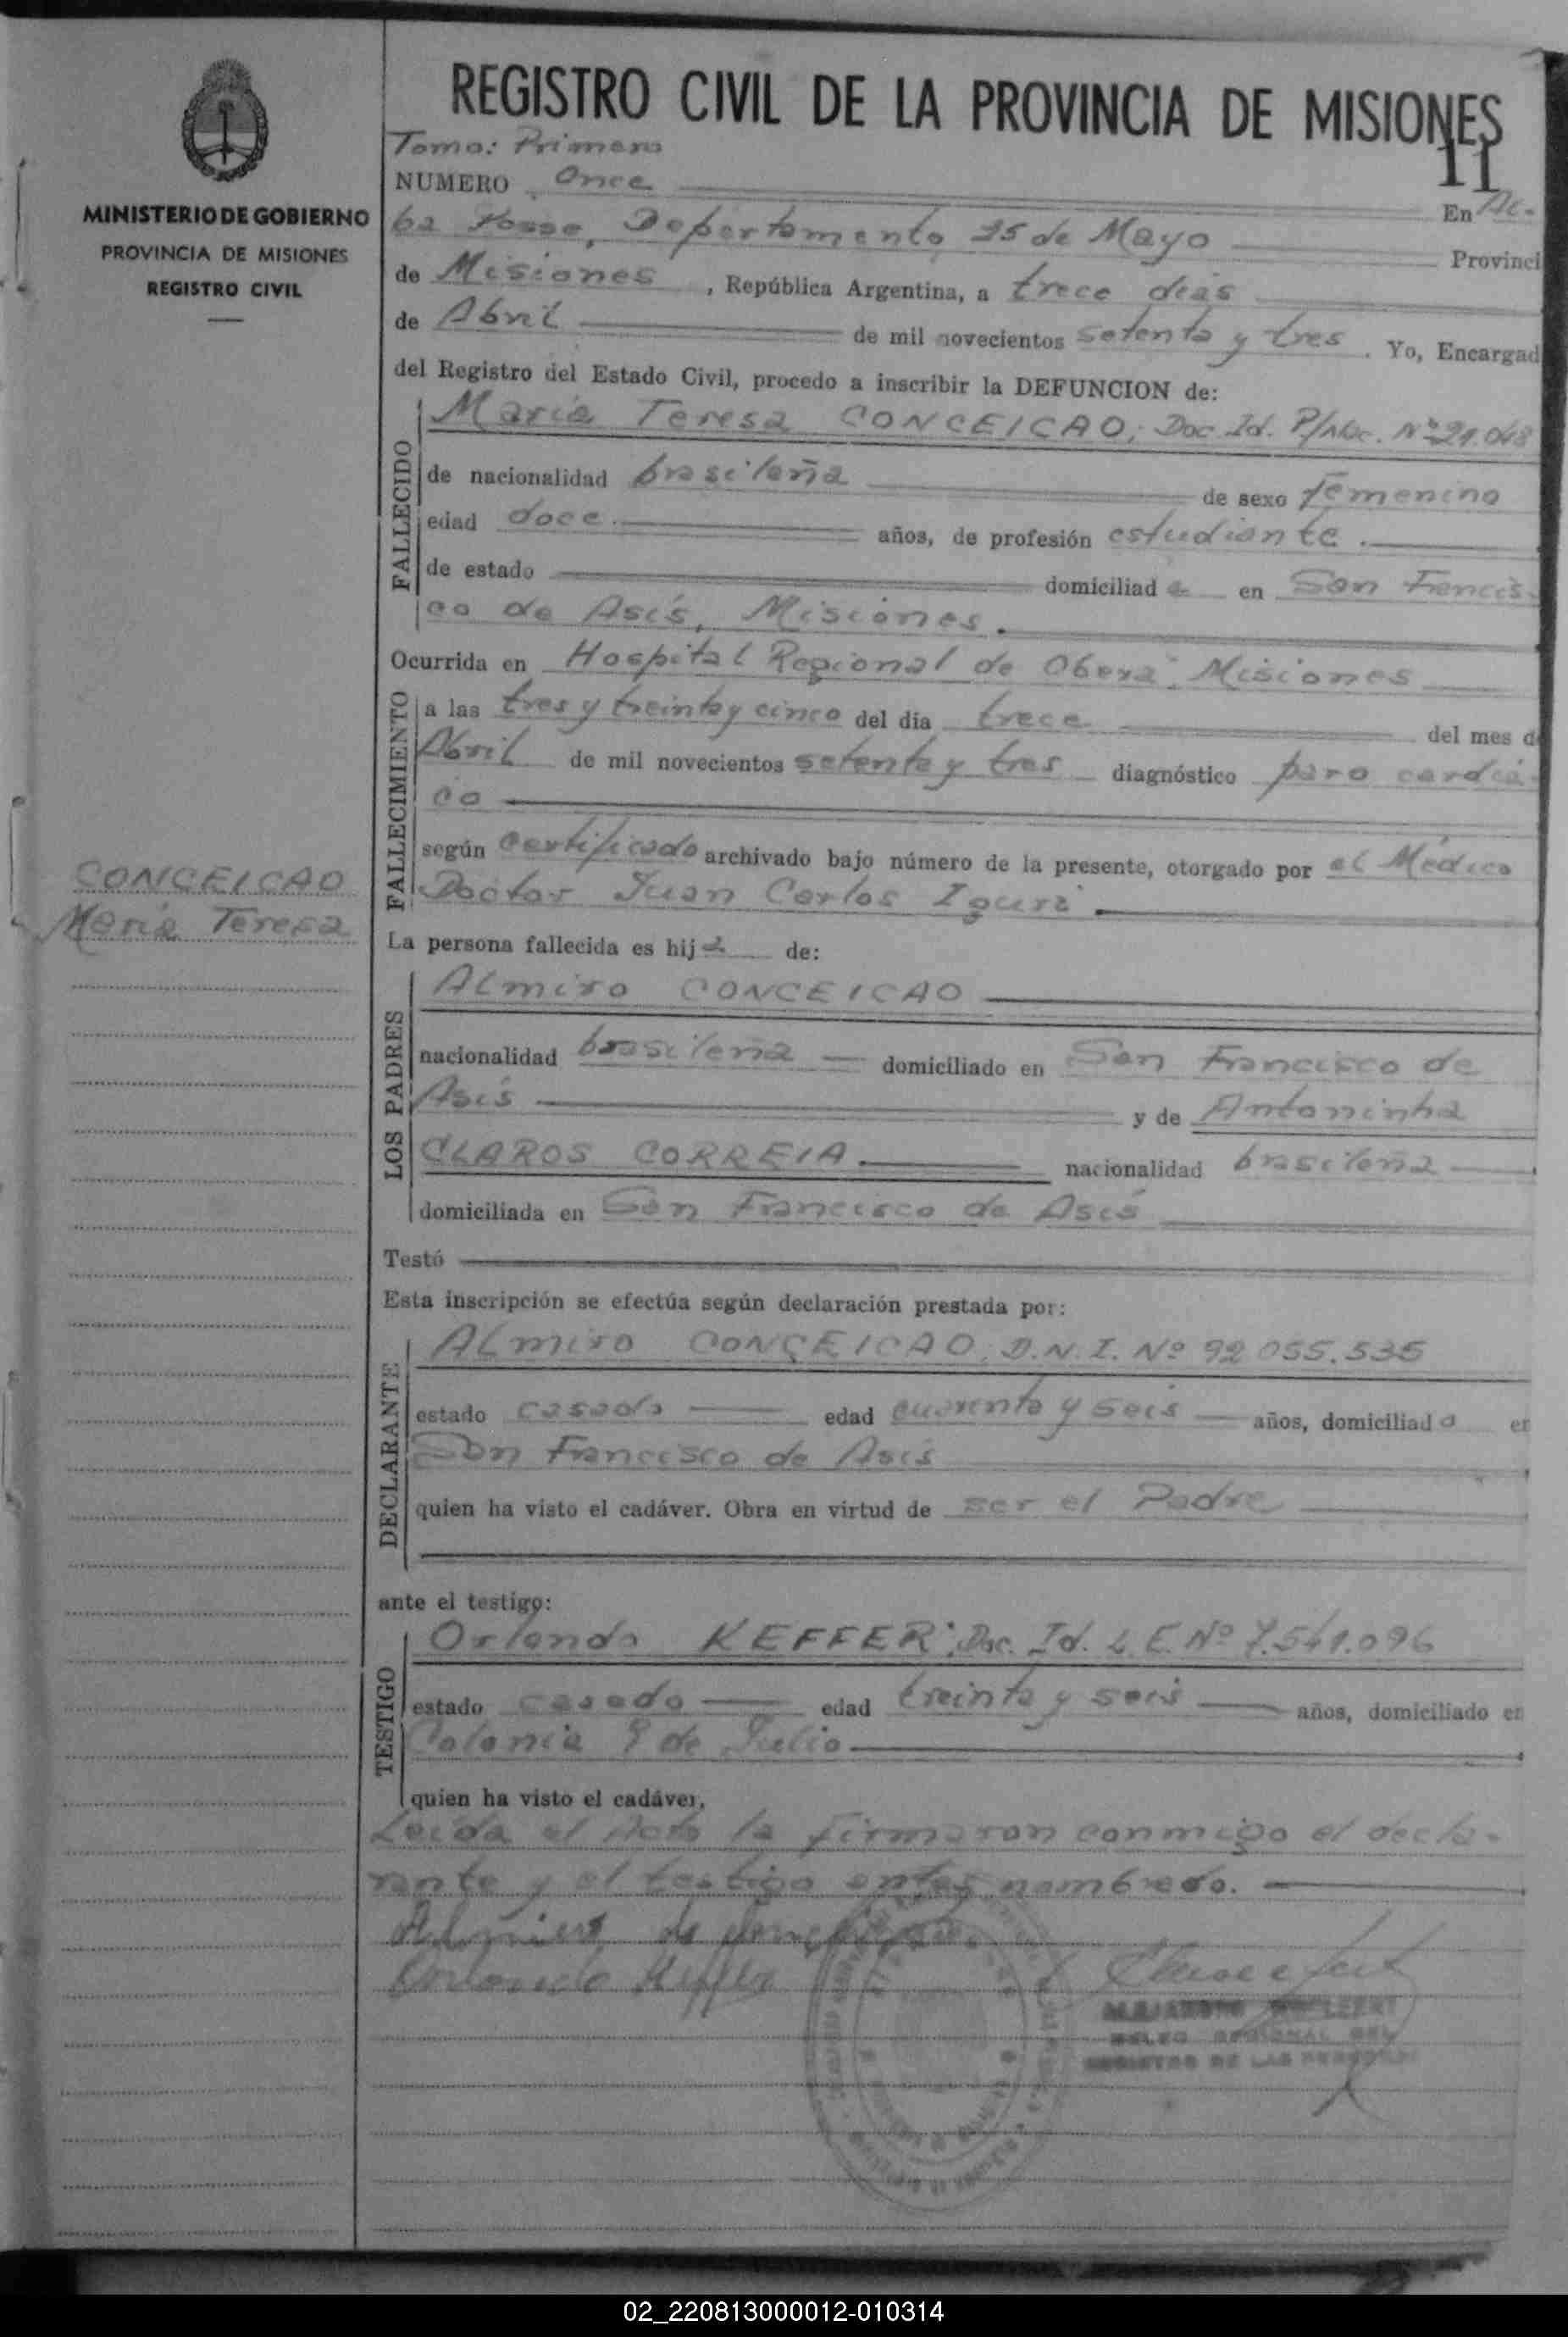 MINISTERIO DE GOBIERNO
PROVINCIA DE MISIONES
REGISTRO CIVIL
CONCEICAO
María Teresa
REGISTRO CIVIL DE LA PROVINCIA DE MISIONES
11
Tomo: Primero
NUMERO Once En Al-
ba Posse, Departamento 25 de Mayo Provinci
de Misiones, República Argentina, a trece días
de Abril de mil novecientos setenta y tres. Yo, Encargad
del Registro del Estado Civil, procedo a inscribir la DEFUNCION de:
FALLECIDO
María Teresa CONCEICAO; Doc. Id. P/Nac. Nº 21.048
de nacionalidad brasileña de sexo femenino
edad doce años, de profesión estudiante.
de estado domiciliada en San Francis-
co de Asís, Misiones.
Ocurrida en Hospital Regional de Oberá Misiones
FALLECIMIENTO
a las tres y treinta y cinco del dia trece del mes d
Abril de mil novecientos setenta y tres diagnóstico paro cardía-
co
según certificado archivado bajo número de la presente, otorgado por el Médico
Doctor Juan Carlos
La persona fallecida es hija de:
LOS PADRES
Almiro CONCEICAO
nacionalidad brasileña domiciliado en San Francisco de
Asís y de Antoninha
CLAROS CORREIA nacionalidad brasileña
domiciliada en San Francisco de Asís
Testó
Esta inscripción se efectúa según declaración prestada por:
DECLARANTE
Almiro CONCEICAO, D.N.I. Nº 92.055.535
estado casado edad cuarenta y seis años, domiciliado en
San Francisco de Asís
quien ha visto el cadáver. Obra en virtud de ser el Padre
ante el testigo:
TESTIGO
Orlando KEFFER; Doc. Id. L.E. Nº 7.541.096
estado casado edad treinta y seis años, domiciliado en
Colonia 9 de Julio
quien ha visto el cadáver.
Leída el Acta la firmaron conmigo el decla-
rante y el testigo antes nombrado.
Orlando Keffer
REGIONAL DEL
REGISTRO DE LAS PERSONAS
02_220813000012-010314